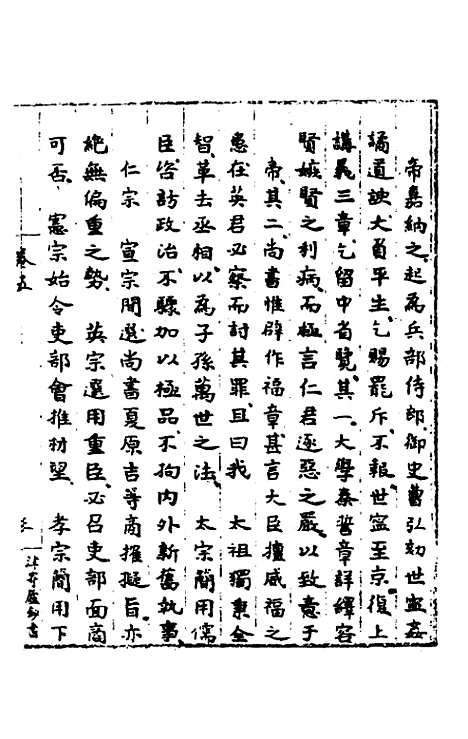 帝嘉納之起爲兵部侍郎御史曹弘劾世寧姦
譎道諛大負平生乞賜罷斥不報世寧至京復上
講義三章乞留中省覽其一大學秦誓章詳繹容
賢嫉賢之利病而極言仁君逐惡之嚴以致意于
帝其二尚書惟辟作福章甚言大臣擅威福之
患在英君必察而討其罪且曰我 太祖獨秉全
智革去丞相以爲子孫萬世之法 太宗簡用儒
臣咨訪政治不驟加以極品不拘内外新舊執事
仁宗 宣宗間選尚書夏原吉等商搉擬旨亦
絶無偏重之勢 英宗選用重臣必召吏部面商
可否 憲宗始令吏部會推材望 孝宗簡用下
卷五